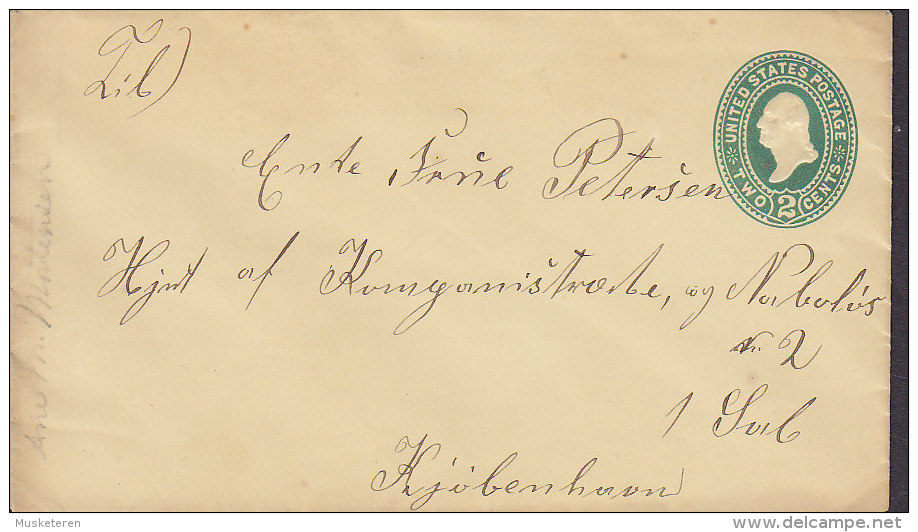 Til)
UNITED STATES POSTAGE
TWO 2 CENTS
Enke Frue Petersen
Hjnt af Kompanistræde, og Nabolös
n. 2
1 Sal
Kjöbenhavn
Musketeren
www.delcampe.net